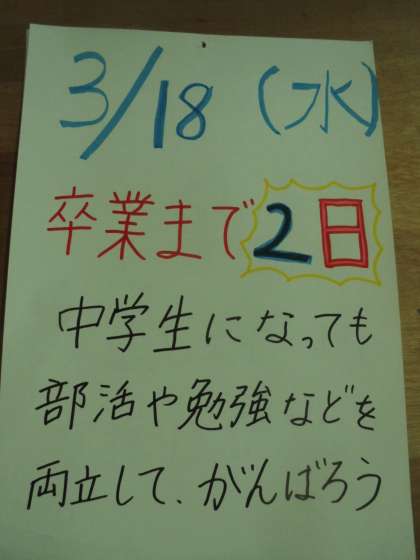 3/18(水)
卒業まで2日
中学生になっても
部活や勉強などを
両立して、がんばろう